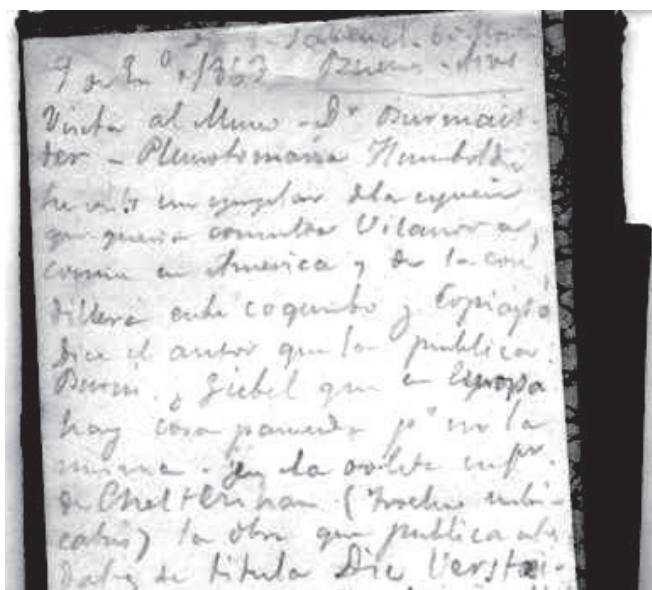 9 de En.º 1863 Buenos Aires
Visita al Museo - Dr Burmais-
ter - Pleurotomaria Humboldti
he visto un ejemplar de la especie
que queria consultar Vilanova,
comun en America y de la cor
dillera entre Coquimbo y Copiapó
Dice el autor que la publica
Burm. y Giebel que en Europa
hay cosa parecida pº no la
misma. En la oolita inf.
de Cheltenham (Trochus
) la obra que publica
se titula Die Verstei-